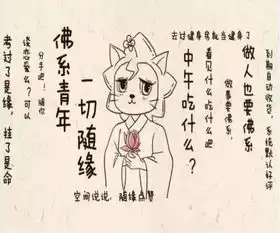 去过健身房就当健身了
到期自动收货，系统默认好评
做人也要佛系
做事要佛系，
看见什么吃什么吧
中午吃什么？
一切随缘
佛系青年
分手吧！随你
谈恋爱么？可以
考过了是缘，挂了是命
空间说说，随缘点赞